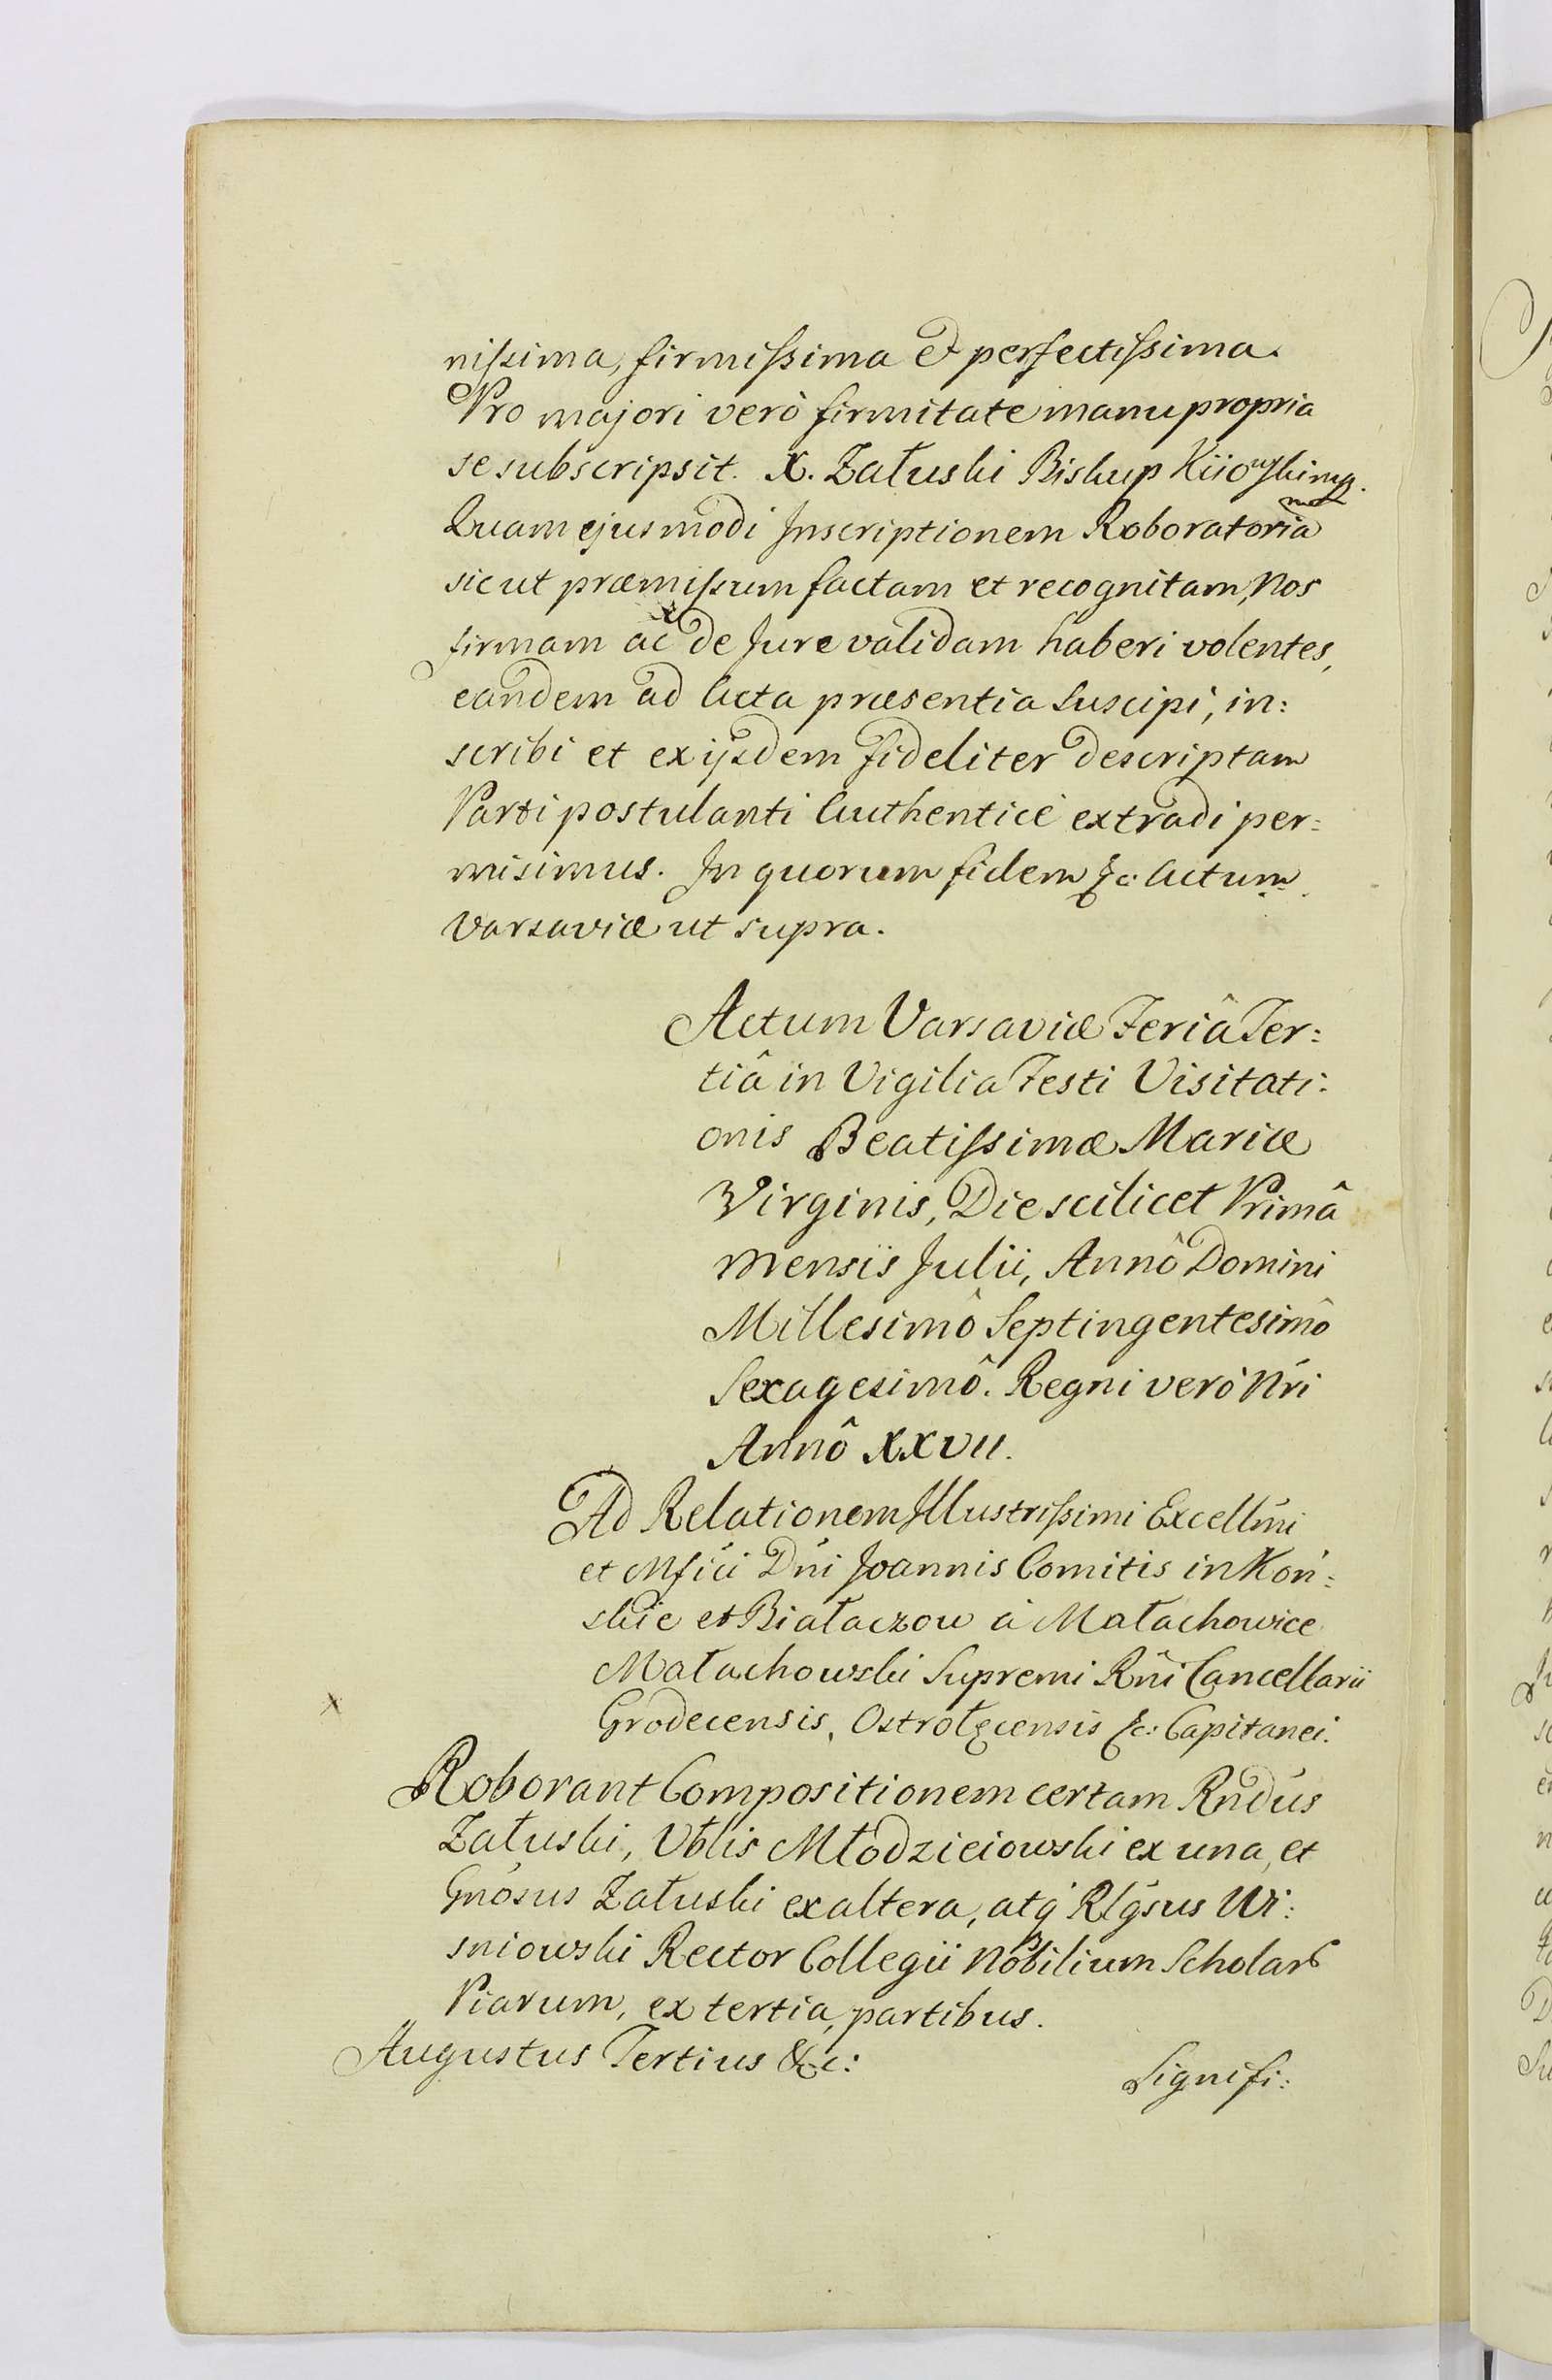 nissima, firmissima et perfectissima.
Pro majori verò firmitate manu propria
se subscripsit. X. Załuski Biskup Kiiowski mp.
Quam ejusmodi Inscriptionem Roboratoriam
sicut præmissum factam et recognitam, Nos
firmam ac de Jure validam haberi volentes,
eandem ad Acta præsentia suscipi, in:
scribi et ex ijsdem fideliter descriptam
Parti postulanti Authenticè extradi per:
misimus. In quorum fidem &c: Actum
Varsaviæ ut supra.
Actum Varsaviæ Feriâ Ter:
tiâ in Vigilia Festi Visitati:
onis Beatissimæ Mariæ
Virginis, Die scilicet Primâ
Mensis Julii, Annô Domini
Millesimô Septingentesimô
Sexagesimô. Regni verò Nri
Annô XXVII.
Ad Relationem Illustrissimi Excellmi
et Mfici Dni Joannis Comitis in Koń:
skie et Białaczow à Małachowice
Małachowski Supremi Rni Cancellarii
Grodecensis, Ostrołęcensis &c: Capitanei.
x
Roborant Compositionem certam Rndus
Załuski, Vblis Młodzieiowski ex una, et
Gnosus Załuski ex altera, atq Rlgsus Wi:
sniowski Rector Collegii Nobilium Scholar
Piarum, ex tertia, partibus.
Augustus Tertius &c:
Signifi: